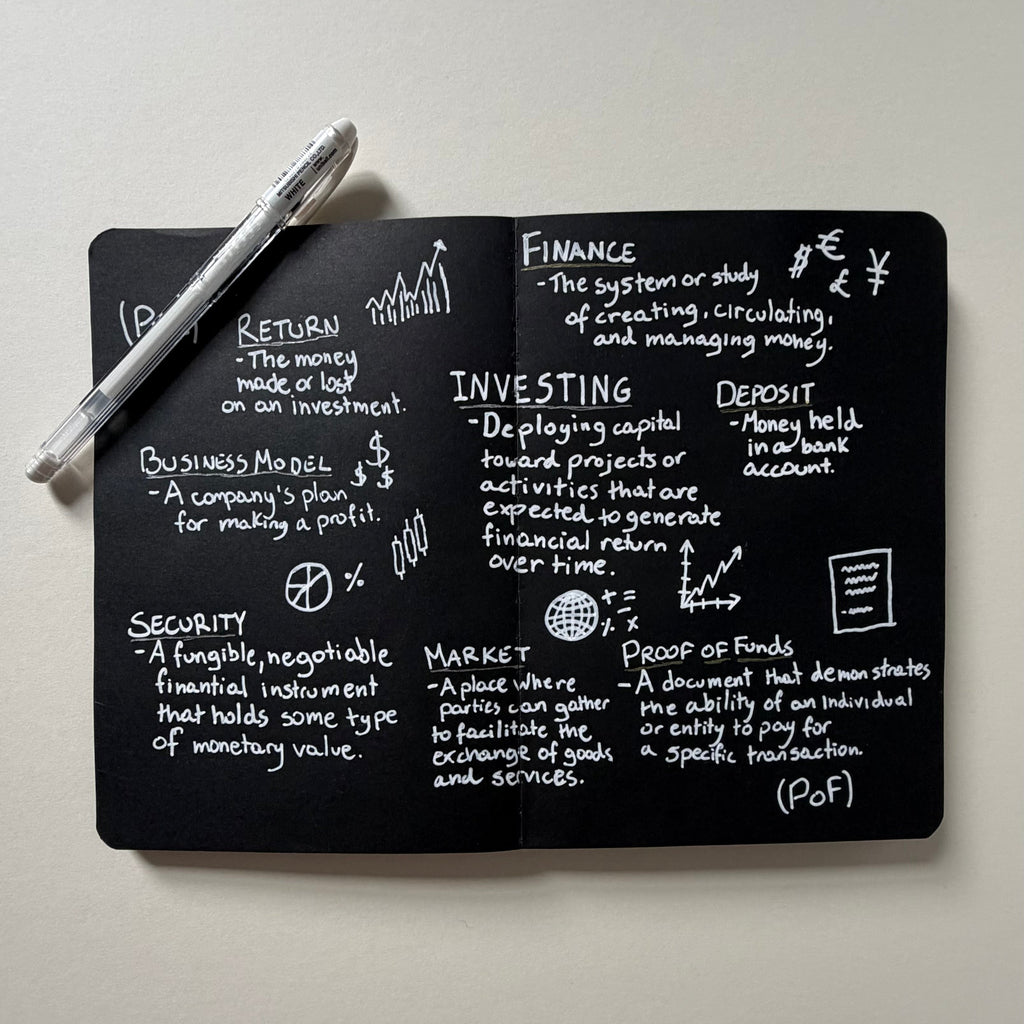 MITSUBISHI PENCIL CO., LTD.
WHITE
RETURN
-The money
made or lost
on an investment.
BUSINESS MODEL
-A company's plan
for making a profit.
$
$ $
%
SECURITY
-A fungible, negotiable
finantial instrument
that holds some type
of monetary value.
FINANCE
-The system or study
of creating, circulating,
and managing money.
$ € £ ¥
INVESTING
-Deploying capital
toward projects or
activities that are
expected to generate
financial return
over time.
DEPOSIT
-Money held
in a bank
account.
+ =
% x
MARKET
-A place where
parties can gather
to facilitate the
exchange of goods
and services.
PROOF OF FUNDS
-A document that demonstrates
the ability of an individual
or entity to pay for
a specific transaction.
(PoF)